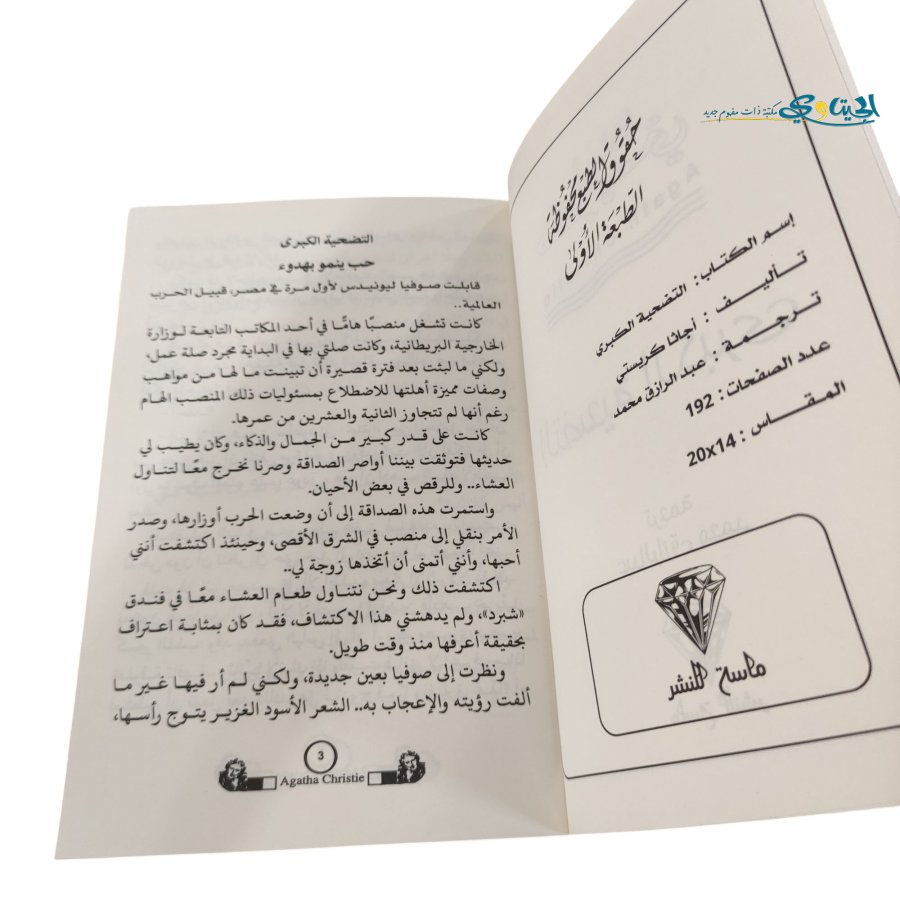 الجيتاوي
مكتبة ذات مفهوم جديد
حقوق الطبع محفوظة
الطبعة الأولى
إسم الكتاب: التضحية الكبرى
تأليف: أجاثا كريستي
ترجمة: عبد الرازق محمد
عدد الصفحات: 192
المقاس: 20x14
ماسة للنشر
التضحية الكبرى
حب ينمو بهدوء
قابلت صوفيا ليونيدس لأول مرة في مصر، قبيل الحرب
العالمية..
كانت تشغل منصبًا هامًّا في أحد المكاتب التابعة لوزارة
الخارجية البريطانية، وكانت صلتي بها في البداية مجرد صلة عمل،
ولكني ما لبثت بعد فترة قصيرة أن تبينت ما لها من مواهب
وصفات مميزة أهلتها للاضطلاع بمسئوليات ذلك المنصب الهام
رغم أنها لم تتجاوز الثانية والعشرين من عمرها.
كانت على قدر كبير من الجمال والذكاء، وكان يطيب لي
حديثها فتوثقت بيننا أواصر الصداقة وصرنا نخرج معًا لتناول
العشاء.. وللرقص في بعض الأحيان.
واستمرت هذه الصداقة إلى أن وضعت الحرب أوزارها، وصدر
الأمر بنقلي إلى منصب في الشرق الأقصى، وحينئذ اكتشفت أنني
أحبها، وأنني أتمنى أن أتخذها زوجة لي..
اكتشفت ذلك ونحن نتناول طعام العشاء معًا في فندق
«شبرد»، ولم يدهشني هذا الاكتشاف، فقد كان بمثابة اعتراف
بحقيقة أعرفها منذ وقت طويل.
ونظرت إلى صوفيا بعين جديدة، ولكني لم أر فيها غير ما
ألفت رؤيته والإعجاب به.. الشعر الأسود الغزير يتوج رأسها،
3
Agatha Christie